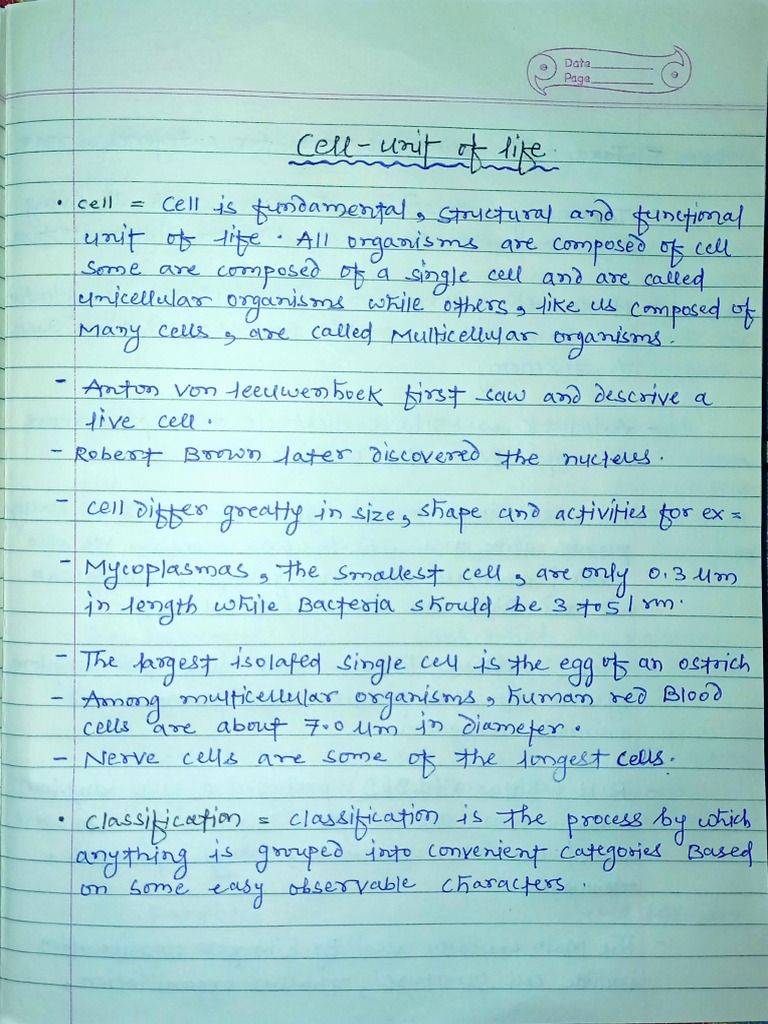 Date
Page
Cell-unit of life.
• cell = Cell is fundamental, structural and functional
unit of life. All organisms are composed of cell
some are composed of a single cell and are called
unicellular organisms while others, like us composed of
Many cells, are called Multicellular organisms.
- Anton von leeuwenhoek first saw and descrive a
live cell.
- Robert Brown later discovered the nucleus.
- cell differ greatly in size, shape and activities for ex =
- Mycoplasmas, the smallest cell, are only 0.3 μm
in length while Bacteria should be 3 to 5
- The largest isolated single cell is the egg of an ostrich
- Among multicellular organisms, human red Blood
cells are about 7.0 μm in diameter.
- Nerve cells are some of the longest cells.
• Classification = classification is the process by which
anything is grouped into convenient categories Based
on some easy observable characters.